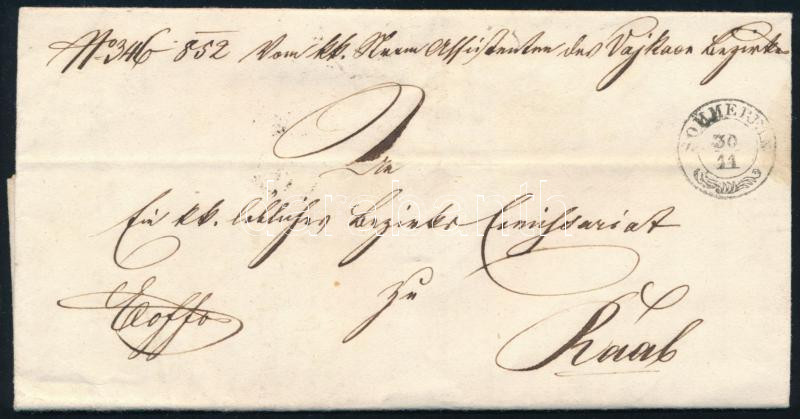 No 346/852 Vom kk. Assistenten des Bezirks
SOMMEREIN
30
11
An
Ein kk. löbliches Bezirks Comißariat
zu
Exoffo
Raab